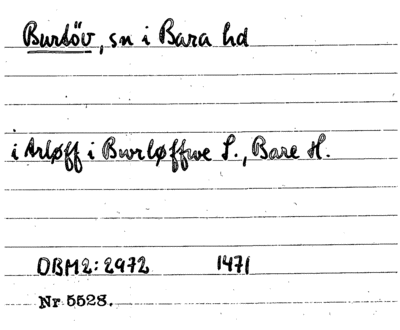 Burlöv, sn i Bara hd
i Arløff i Bwrløffwe S., Bare H.
DBM2:2972 1471
Nr 5528.